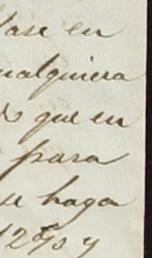 ase en
ualquiera
o que en
para
se haga
12% y